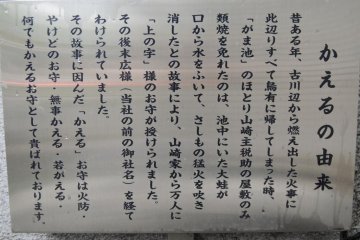 かえるの由来
昔ある年、古川辺から燃え出した火事に
此辺りすべて烏有に帰してしまった時、
「がま池」のほとり山崎主税助の屋敷のみ
類焼を免れたのは、池中にいた大蛙が
口から水をふいて、さしもの猛火を吹き
消したとの故事により、山崎家から万人に
「上の字」様のお守が授けられました。
その後末広様（当社の前の御社名）を経て
わけられていました。
その故事に因んだ「かえる」お守は火防・
やけどのお守・無事かえる・若がえる・
何でもかえるお守として貴ばれております。